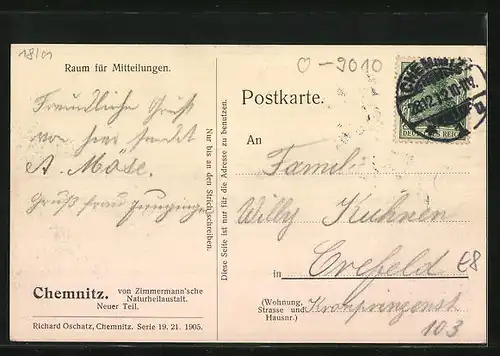 18/01
Raum für Mitteilungen.
Freundliche Gruß
von hier sendet
A. Möse.
Gruß frau
Chemnitz. von Zimmermann'sche
Naturheilaustalt.
Neuer Teil.
Richard Oschatz, Chemnitz. Serie 19. 21. 1905.
Nur bis an den Strich schreiben.
Diese Seite ist nur für die Adresse zu benutzen.
O-9010
Postkarte.
DEUTSCHES REICH
An
Famil.
Willy Kühnen
in Crefeld
E8
(Wohnung,
Strasse und Kronprinzenst
Hausnr.)
103